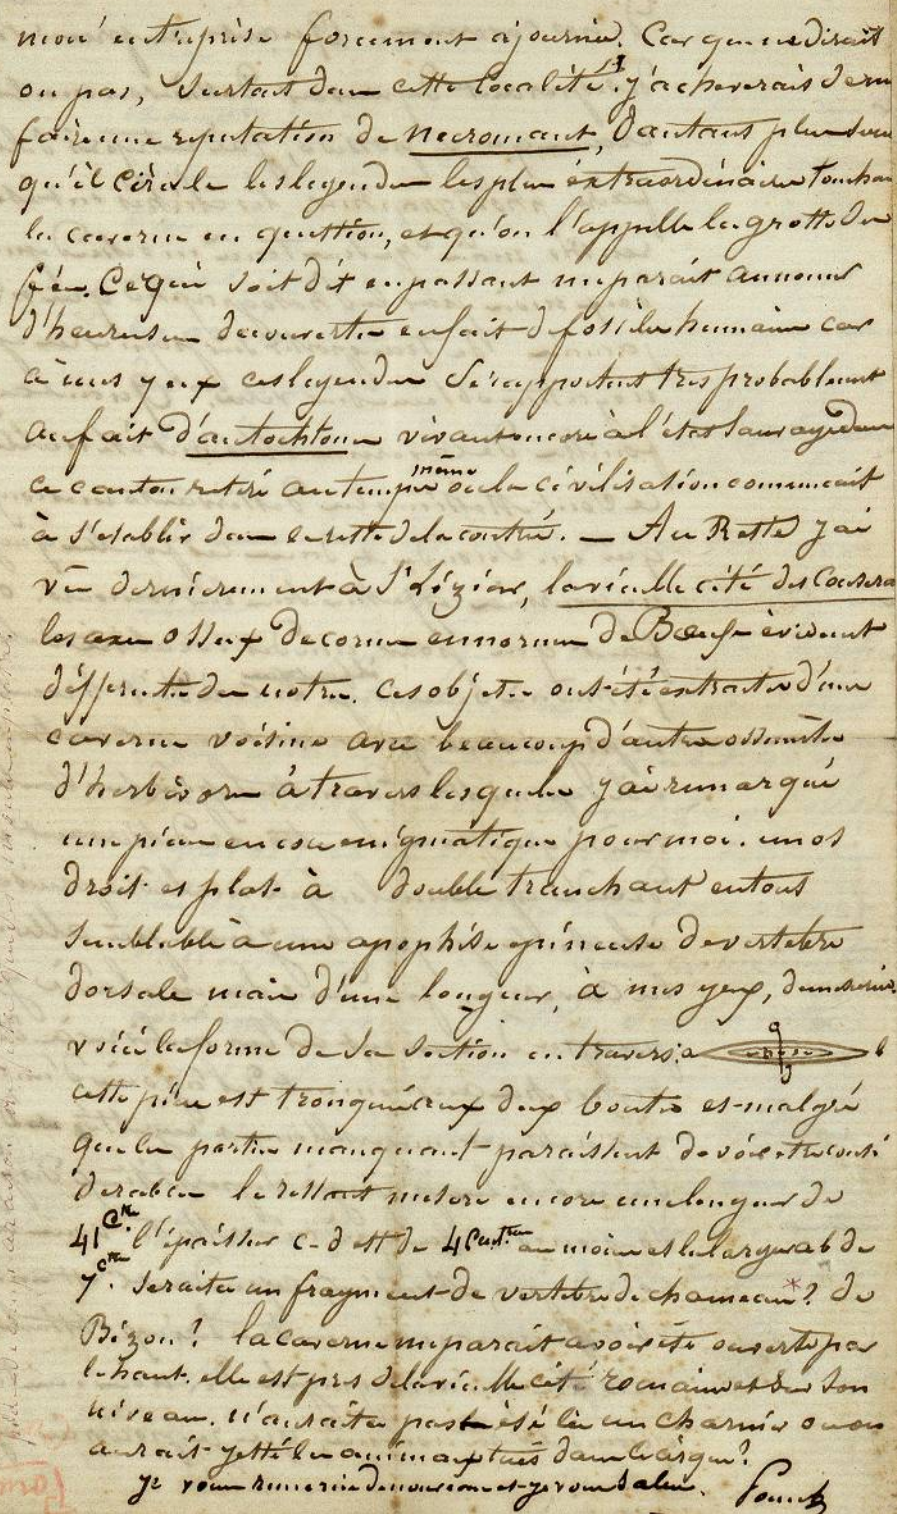 mon entreprise forcement ajournée. Car que ne dirait
on pas, surtout dans cette localité. j'acheverais de me
faire une reputation de necromant, d'autant plus
qu'il circule les legendes les plus extraordinaires touchant
la caverne en question, et qu'on l'appelle la grotte des
fées. Ce qui soit dit en passant me parait annoncer
d'heureuses decouvertes en fait de fossiles humains car
à mes yeux ces legendes se rapportent tres probablement
au fait d'autochtones vivant encore à l'etat sauvage dans
ce canton retiré au temps même où la civilisation commencait
à s'etablir dans le reste de la contrée. — Au Reste j'ai
vu dernierement à St Lizier, la vieille cité des Cousera
les axes osseux de cornes ennormes de Bœufs evidement
differentes des notres. ces objets ont été extraits d'une
caverne voisine avec beaucoup d'autres ossements
d'herbivores à travers lesquels j'ai remarqué
une piece encore enigmatique pour moi. un os
droit et plat à double tranchant en tout
semblable à une apophise epineuse de vertebre
dorsale mais d'une longueur, à mes yeux,
voici la forme de sa section en travers: a b
cette piece est tronquée aux deux bouts et malgré
que les parties manquant paraissent devoir etre consi
derables le restant mesure encore une longueur de
41 Cm. l'épaisseur c-d est de 4 Cent. au moins et la largeur ab de
7 cm. serait ce un fragment de vertebre de chameau*? de
Bizon? la caverne me parait avoir été ouverte par
le haut. elle est pres de la vieille cité romaine et sur son
niveau. n'aurait ce pas été là un charnier ou on
aurait jetté les animaux tués dans le cirque?
je vous remercie de nouveau et je vous salue.